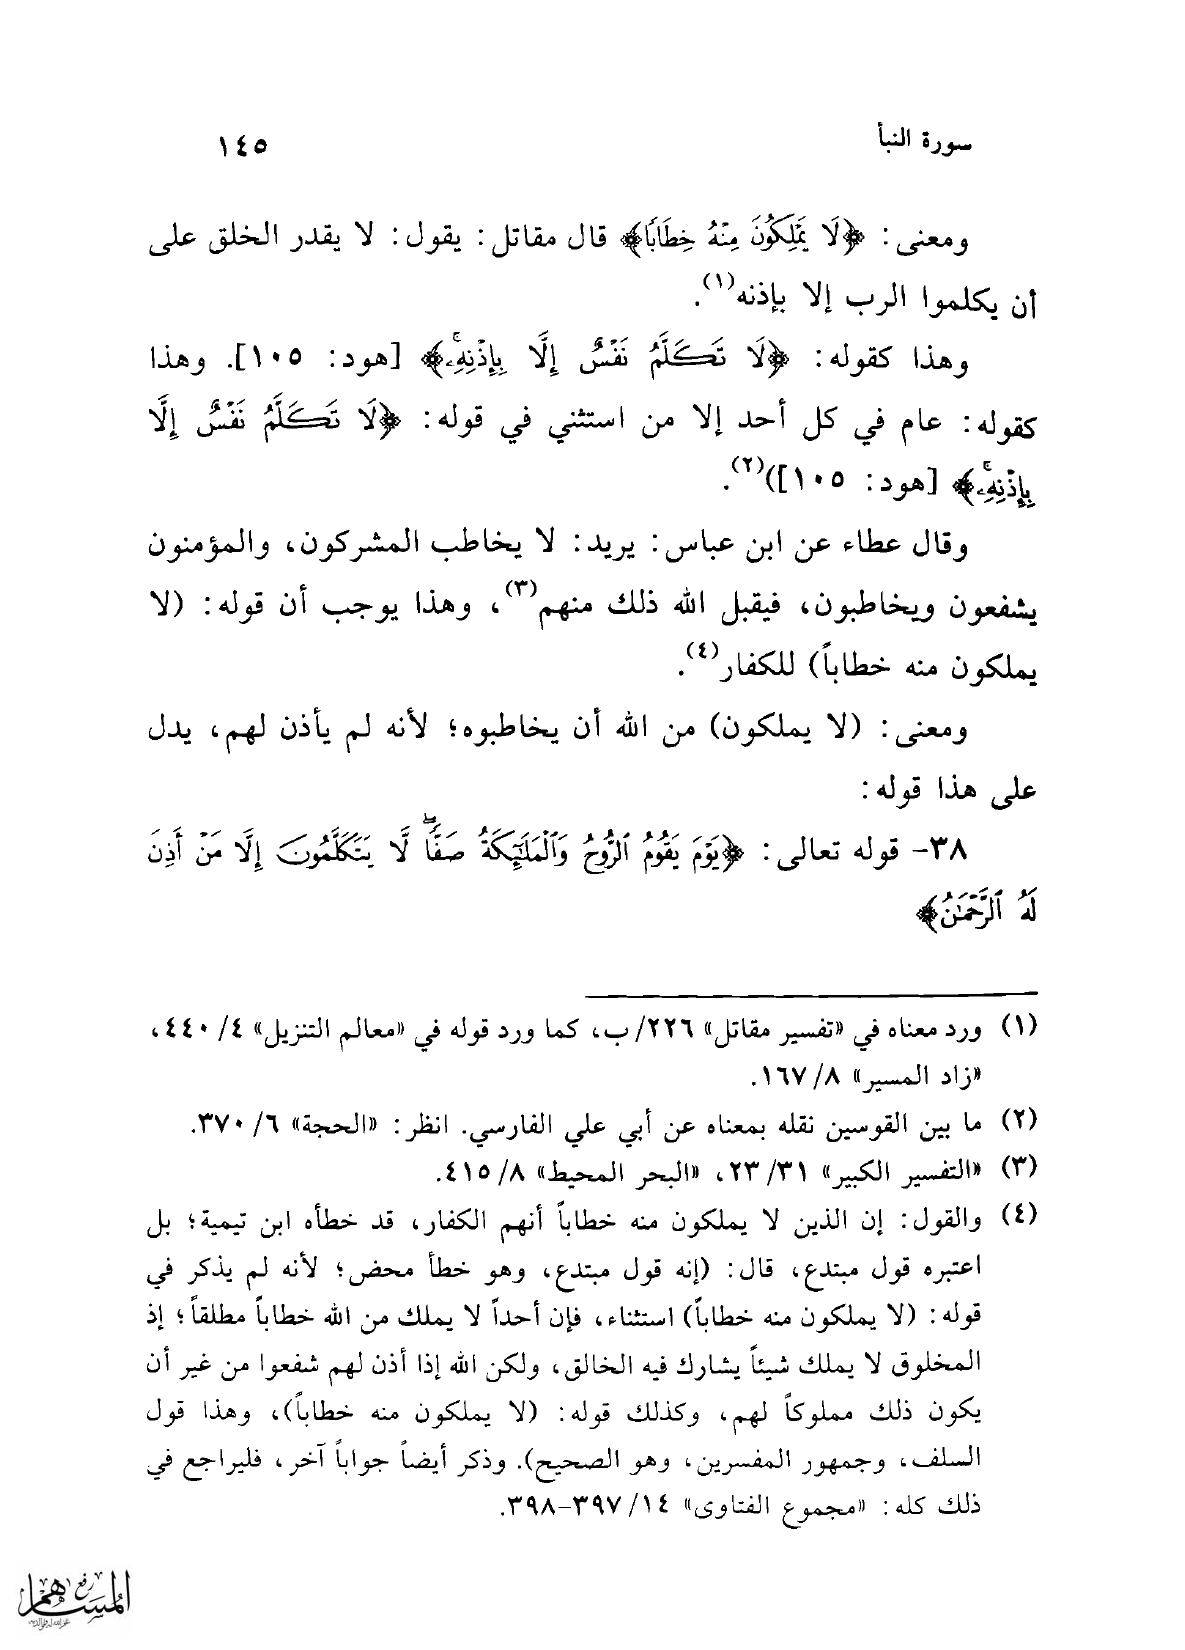 سورة النبأ ١٤٥
ومعنى: ﴿لَا يَمْلِكُونَ مِنْهُ خِطَابًا﴾ قال مقاتل: يقول: لا يقدر الخلق على
أن يكلموا الرب إلا بإذنه(١).
وهذا كقوله: ﴿لَا تَكَلَّمُ نَفْسٌ إِلَّا بِإِذْنِهِ﴾ [هود: ١٠٥]. وهذا
كقوله: عام في كل أحد إلا من استثني في قوله: ﴿لَا تَكَلَّمُ نَفْسٌ إِلَّا
بِإِذْنِهِ﴾ [هود: ١٠٥])(٢).
وقال عطاء عن ابن عباس: يريد: لا يخاطب المشركون، والمؤمنون
يشفعون ويخاطبون، فيقبل الله ذلك منهم(٣)، وهذا يوجب أن قوله: (لا
يملكون منه خطاباً) للكفار(٤).
ومعنى: (لا يملكون) من الله أن يخاطبوه؛ لأنه لم يأذن لهم، يدل
على هذا قوله:
٣٨- قوله تعالى: ﴿يَوْمَ يَقُومُ الرُّوحُ وَالْمَلَائِكَةُ صَفًّا لَّا يَتَكَلَّمُونَ إِلَّا مَنْ أَذِنَ
لَهُ الرَّحْمَنُ﴾
(١) ورد معناه في «تفسير مقاتل» ٢٢٦/ب، كما ورد قوله في «معالم التنزيل» ٤/ ٤٤٠،
«زاد المسير» ٨/ ١٦٧.
(٢) ما بين القوسين نقله بمعناه عن أبي علي الفارسي. انظر: «الحجة» ٦/ ٣٧٠.
(٣) «التفسير الكبير» ٣١/ ٢٣، «البحر المحيط» ٨/ ٤١٥.
(٤) والقول: إن الذين لا يملكون منه خطاباً أنهم الكفار، قد خطأه ابن تيمية؛ بل
اعتبره قول مبتدع، قال: (إنه قول مبتدع، وهو خطأ محض؛ لأنه لم يذكر في
قوله: (لا يملكون منه خطاباً) استثناء، فإن أحداً لا يملك من الله خطاباً مطلقاً؛ إذ
المخلوق لا يملك شيئاً يشارك فيه الخالق، ولكن الله إذا أذن لهم شفعوا من غير أن
يكون ذلك مملوكاً لهم، وكذلك قوله: (لا يملكون منه خطاباً)، وهذا قول
السلف، وجمهور المفسرين، وهو الصحيح). وذكر أيضاً جواباً آخر، فليراجع في
ذلك كله: «مجموع الفتاوى» ١٤/ ٣٩٧-٣٩٨.
رفع
المساهم